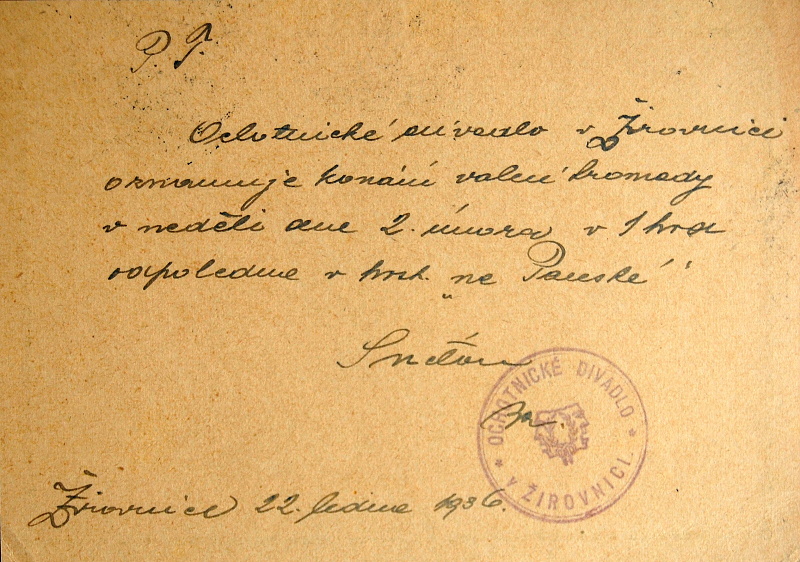 P. T.
Ochotnické divadlo v Žirovnici
oznamuje konání valné hromady
v neděli dne 2. února v 1 hod
odpoledne v host. "na Panské"
OCHOTNICKÉ DIVADLO
V ŽIROVNICI.
Žirovnice 22. ledna 1936.